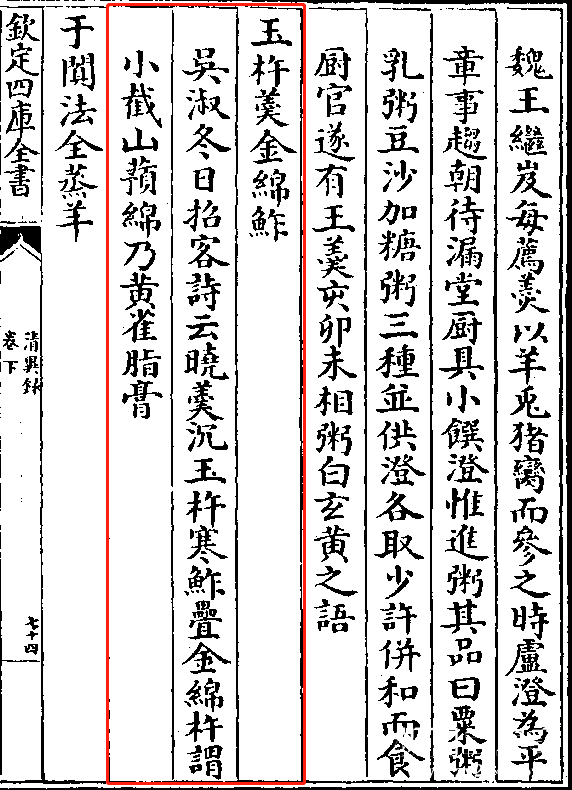 魏王繼岌每薦羮以羊兎猪臠而參之時盧澄為平
章事趨朝待漏堂厨具小饌澄惟進粥其品曰粟粥
乳粥豆沙加糖粥三種並供澄各取少許併和而食
厨官遂有王羮亥卯未相粥白玄黄之語
玉杵羮金綿鮓
吳淑冬日招客詩云曉羮沉玉杵寒鮓疊金綿杵謂
小截山蕷綿乃黄雀脂膏
于闐法全蒸羊
欽定四庫全書
清異錄
卷下
七十四